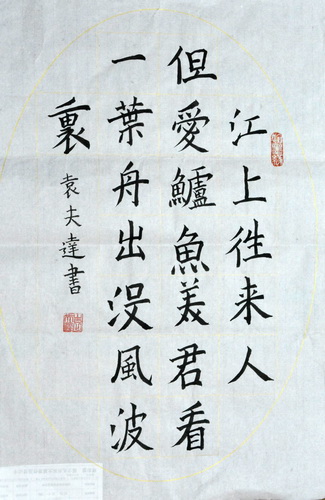 江上往来人
但愛鱸魚美君看
一葉舟出没風波
裏
袁夫達書